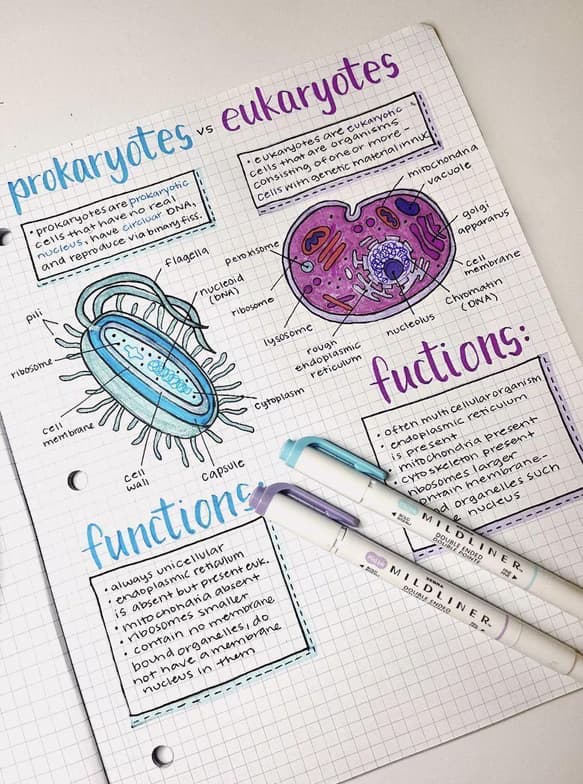 prokaryotes vs eukaryotes
• prokaryotes are prokaryotic
cells that have no real
nucleus, have circluar DNA,
and reproduce via binary fiss.
• eukaryotes are eukaryotic
cells that are organisms
consisting of one or more -
cells with genetic material in nuc
flagella
nucleoid
(DNA)
pili
ribosome
cell
membrane
cell
wall
capsule
cytoplasm
mitochondria
vacuole
golgi
apparatus
cell
membrane
Chromatin
(DNA)
nucleolus
rough
endoplasmic
reticulum
lysosome
ribosome
peroxisome
functions:
• always unicellular
• endoplasmic reticulum
is absent but present euk.
• mitochondria absent
• ribosomes smaller
• contain no membrane
bound organelles, do
not have a membrane
nucleus in them
fuctions:
• often multicellular organism
• endoplasmic reticulum
is present
mitochondria present
cytoskeleton present
ribosomes larger
contain membrane-
organelles such
nucleus
MILDLINER
DOUBLE ENDED
DOUBLE POINTE
ZEBRA
MILDLINER
DOUBLE ENDED
DOUBLE POINTE